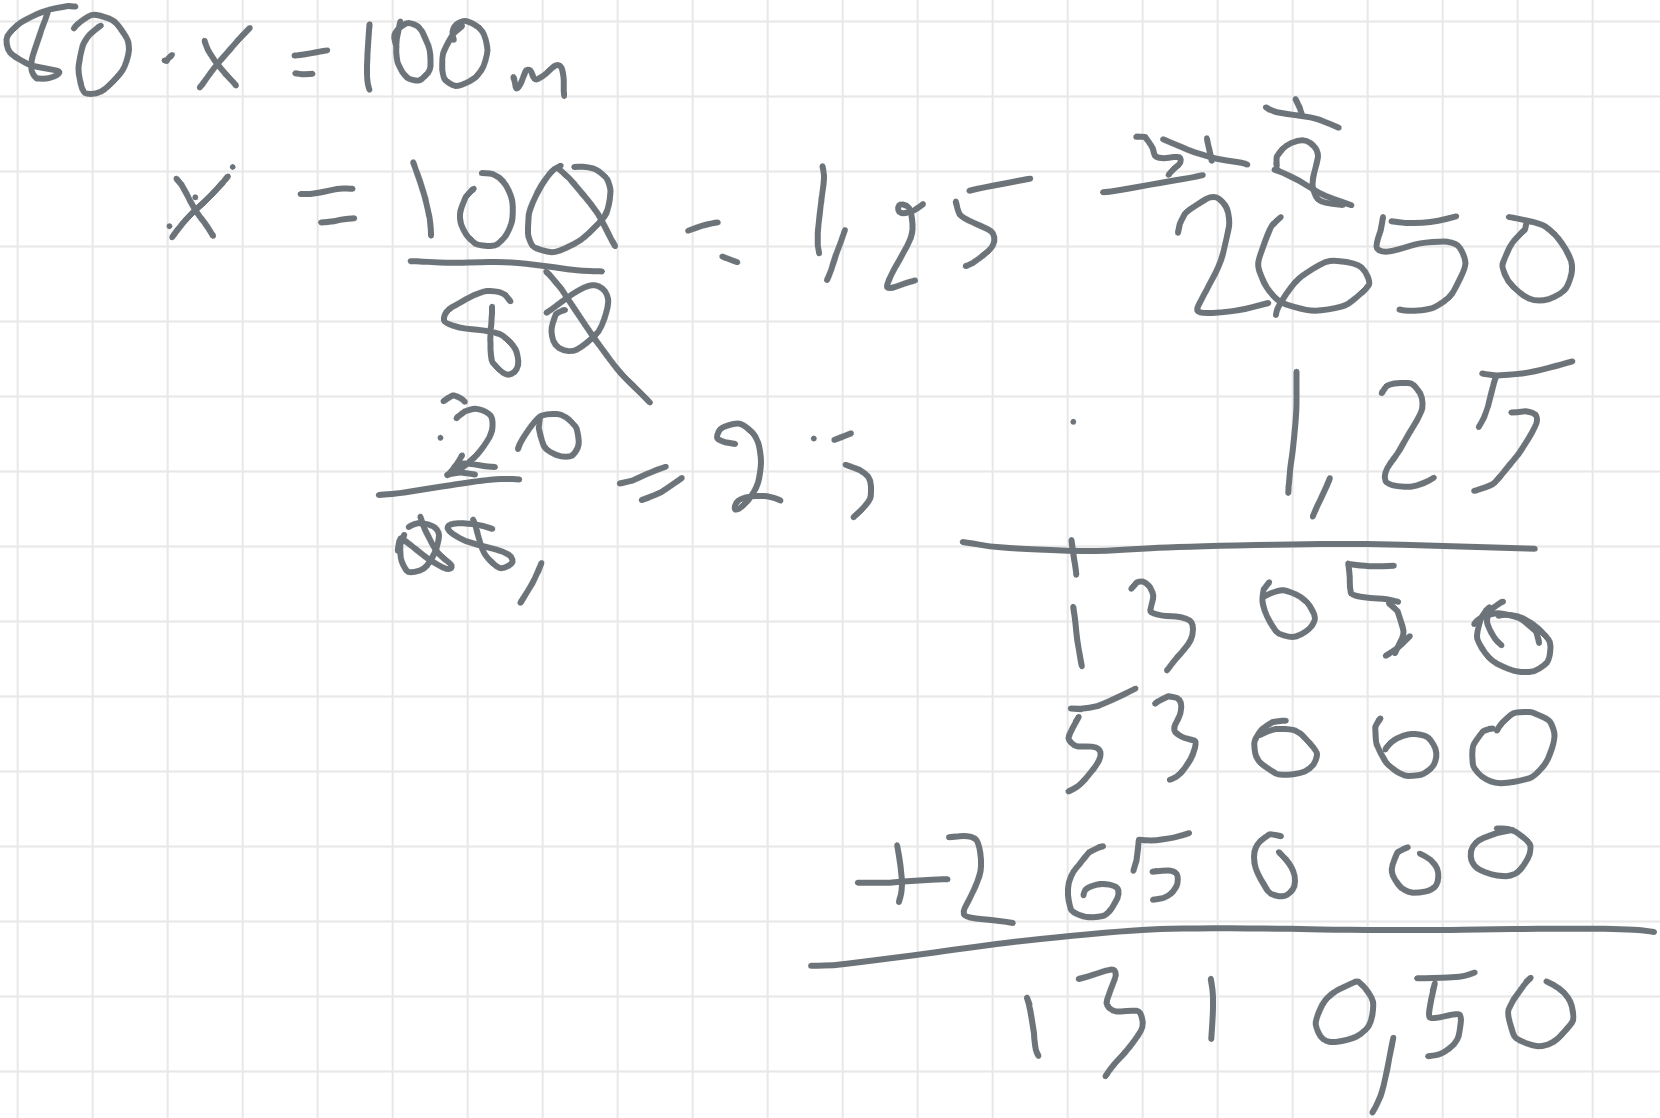 80 · x = 100 m
x = 100/80 = 1,25
20 = 25
2650
1,25
13050
53000
+265000
1310,50